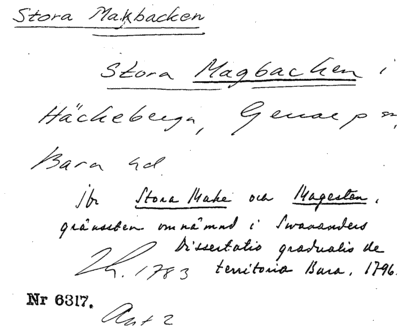 Stora Makbacken
Stora Magbacken i
Häckeberga, Genarp sn,
Bara hd.
jfr Stora Make och Magesten,
gränsen omnämnd i Swananders
Dissertatio gradualis de
territorio Bara, 1796.
1783
Nr 6317.
Ant 2